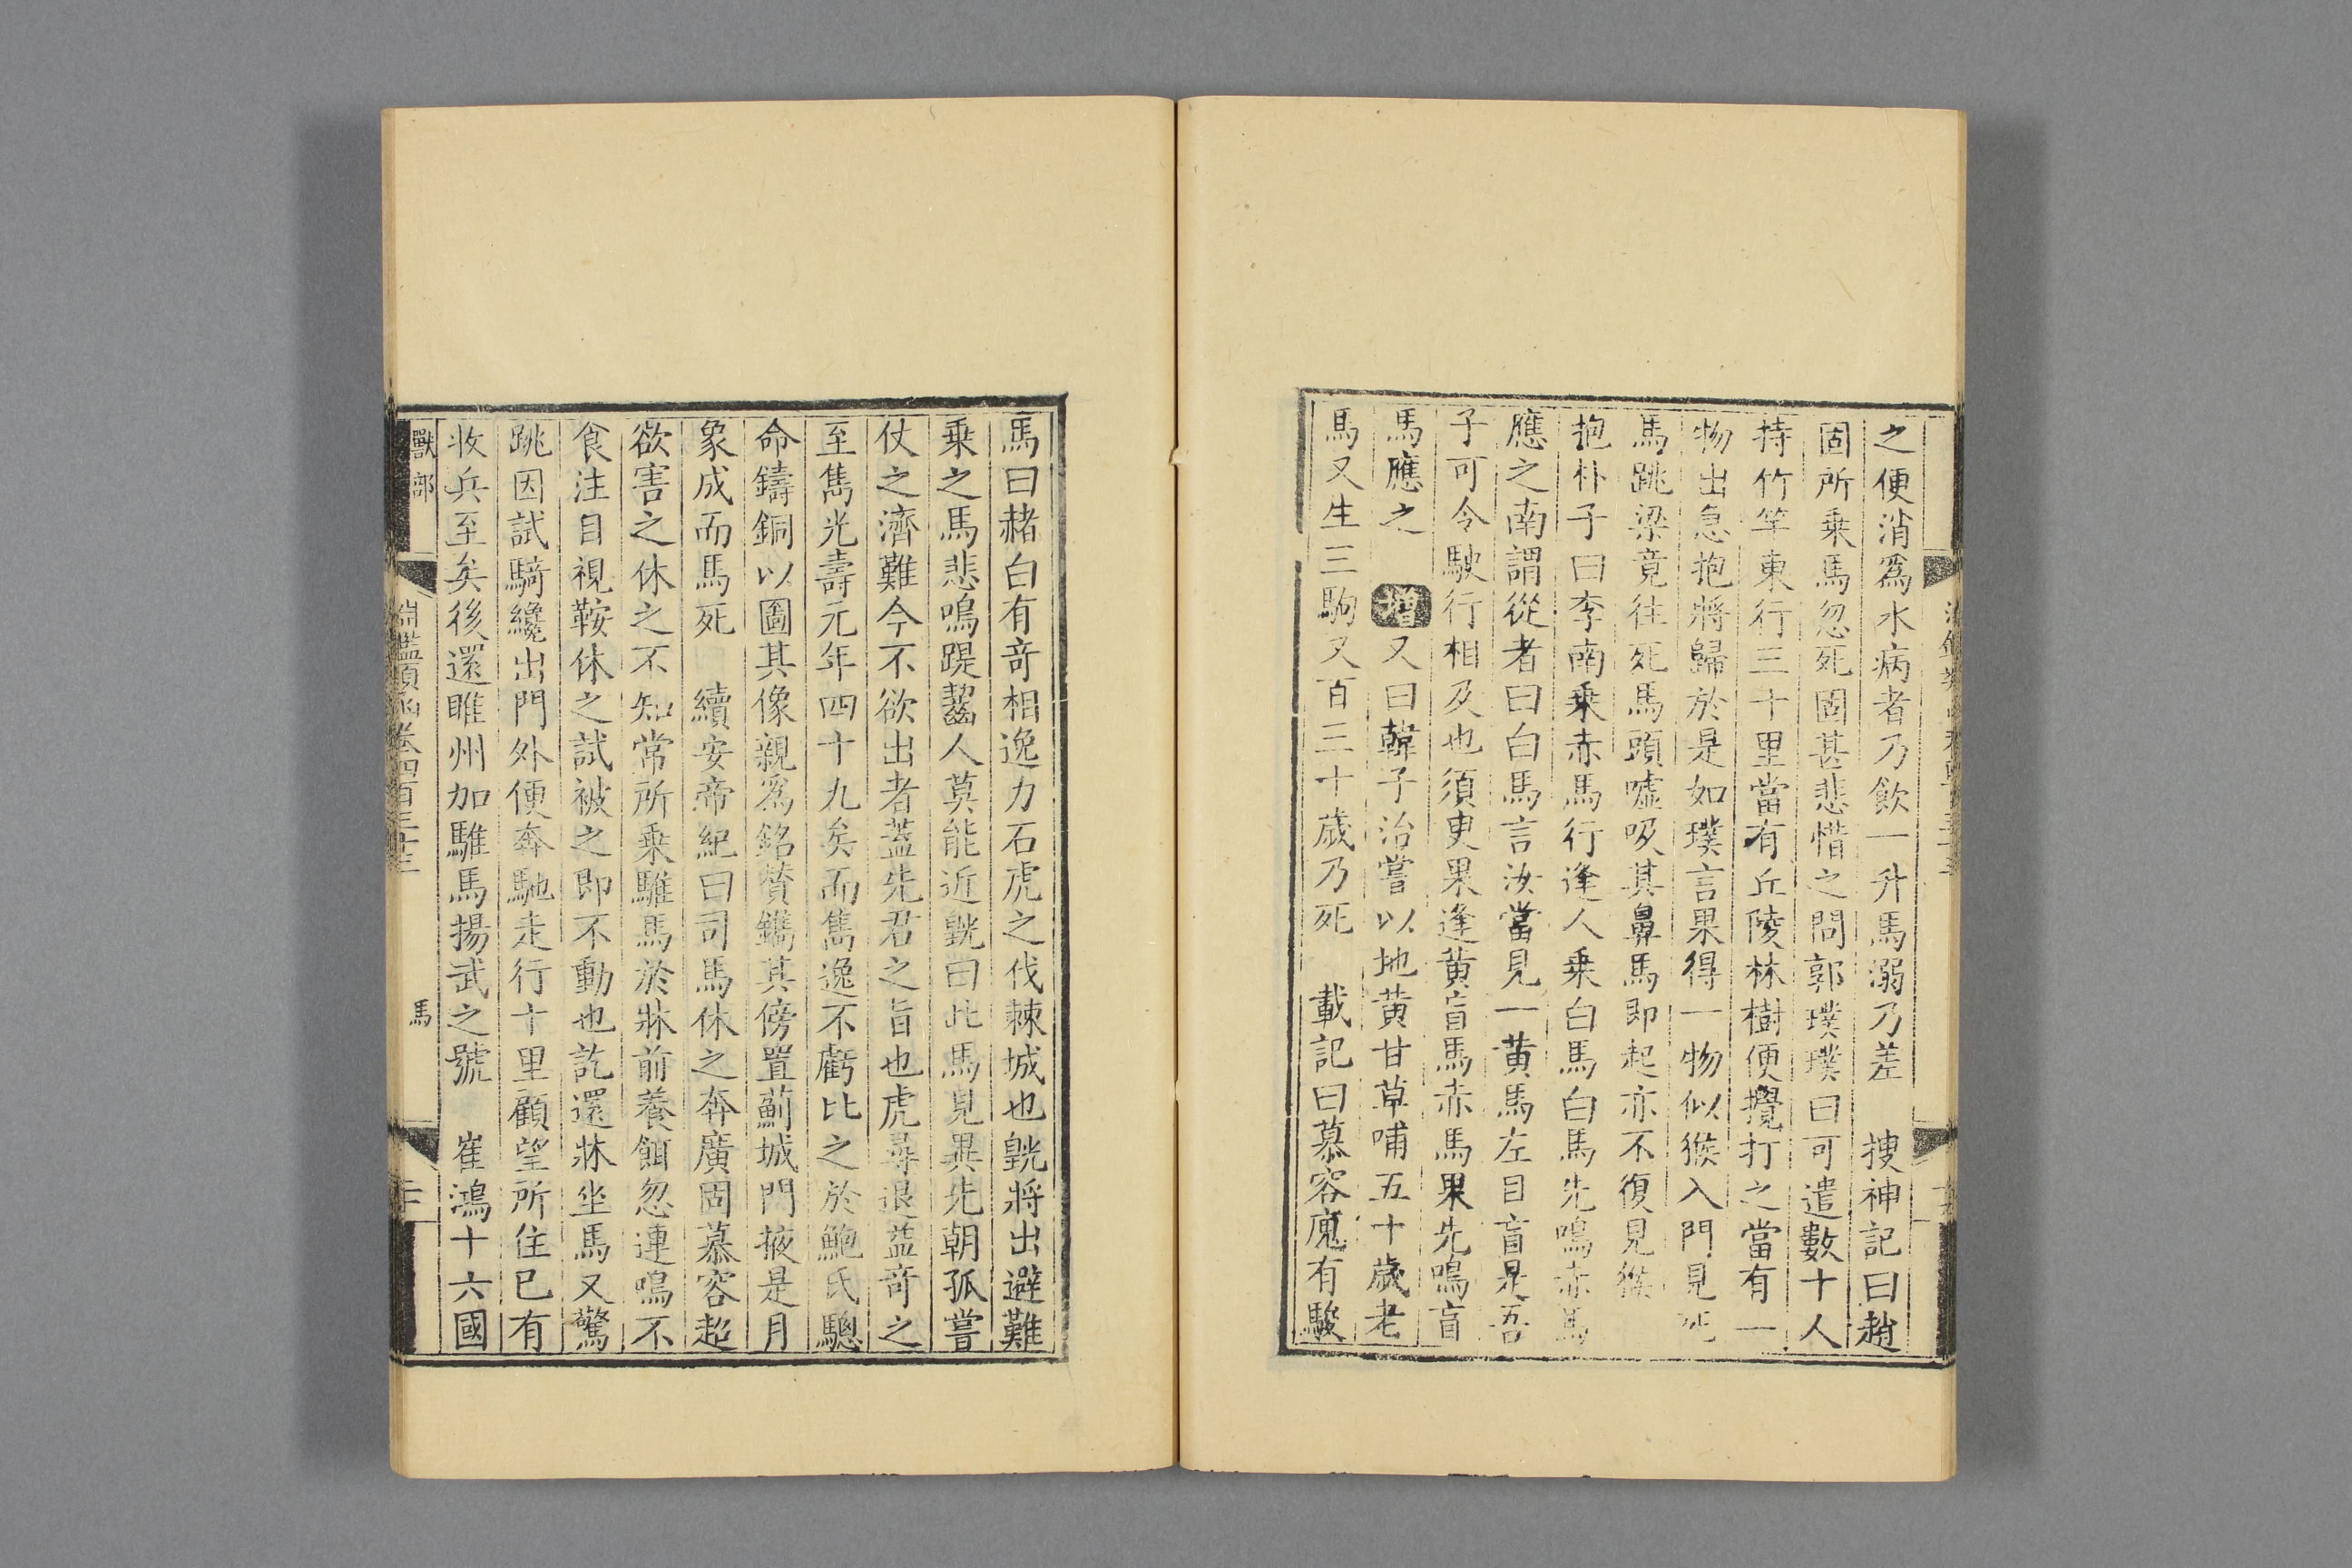 之便消爲水病者乃飲一升馬溺乃差　搜神記曰趙
固所乗馬忽死固甚悲惜之問郭璞璞曰可遣數十人
持竹竿東行三十里當有丘陵林樹便攪打之當有一
物出急抱將歸於是如璞言果得一物似猴入門見死
馬跳梁竟往死馬頭噓吸其鼻馬即起亦不復見猴
抱朴子曰李南乗赤馬行逢人乗白馬白馬先鳴赤馬
應之南謂從者曰白馬言汝當見一黄馬左目盲是吾
子可令駛行相及也須臾果逢黄盲馬赤馬果先鳴盲
馬應之　增又曰韓子治嘗以地黄甘草哺五十歲老
馬又生三駒又百三十歲乃死　載記曰慕容廆有駿
馬曰赭白有奇相逸力石虎之伐棘城也皝將出避難
乗之馬悲鳴踶齧人莫能近皝曰此馬見異先朝孤嘗
仗之濟難今不欲出者蓋先君之旨也虎尋退益奇之
至雋光壽元年四十九矣而雋逸不虧比之於鮑氏驄
命鑄銅以圖其像親爲銘贊鐫其傍置薊城門掖是月
象成而馬死　續安帝紀曰司馬休之奔廣固慕容超
欲害之休之不知常所乗騅馬於牀前養餌忽連鳴不
食注目視鞍休之試被之即不動也訖還牀坐馬又驚
跳因試騎纔出門外便奔馳走行十里顧望所住已有
收兵至矣後還睢州加騅馬揚武之號　崔鴻十六國
獸部
淵鑑類函卷四百三十三
馬